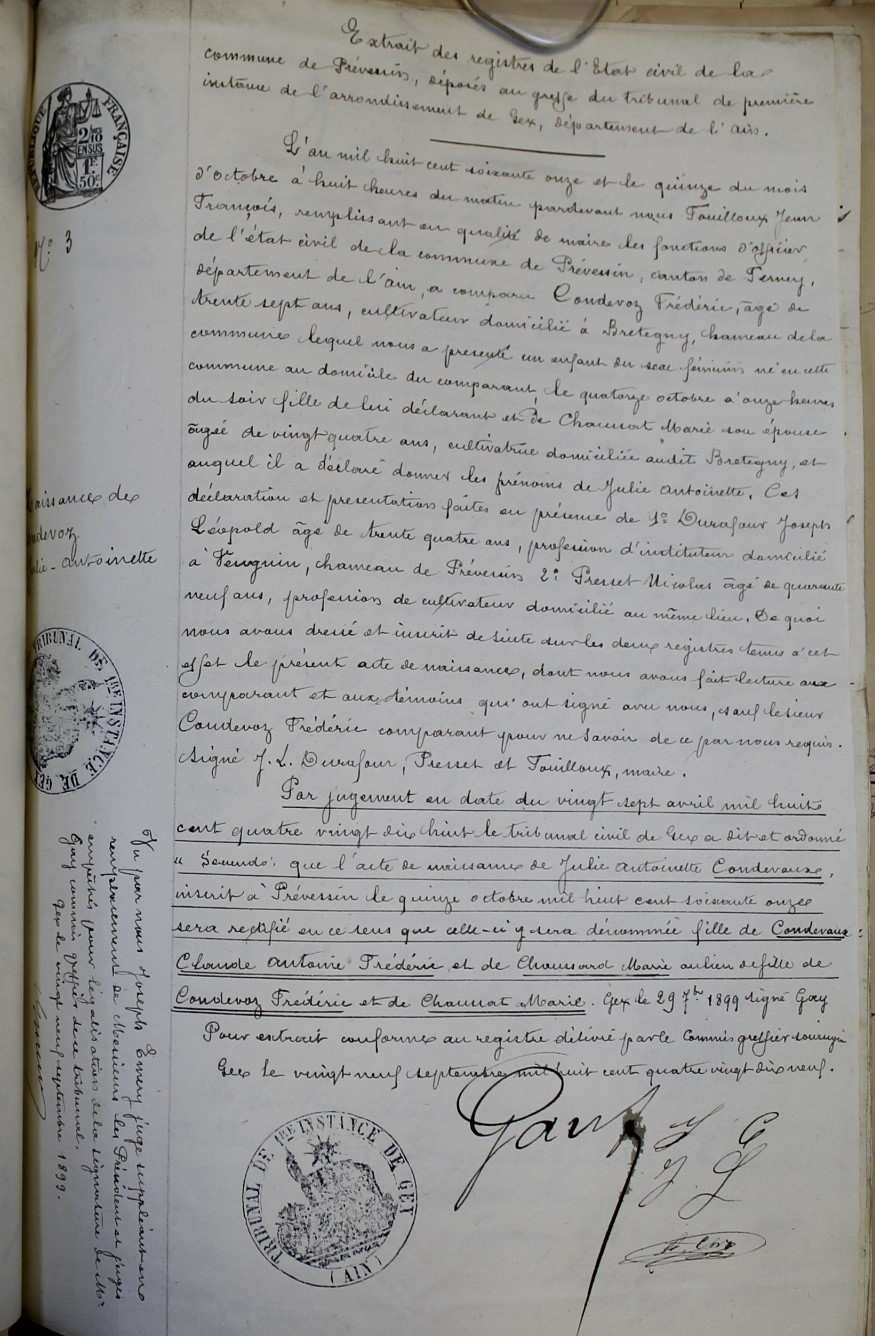 Extrait des registres de l'Etat civil de la
commune de Prévessin, déposés au greffe du tribunal de première
instance de l'arrondissement de Gex, département de l'Ain.
RÉPUBLIQUE FRANÇAISE
2/10
EN SUS
1F
50C
No 3
L'an mil huit cent soixante onze et le quinze du mois
d'octobre à huit heures du matin pardevant nous Fouilloux Jean
François, remplissant en qualité de maire les fonctions d'officier
de l'état civil de la commune de Prévessin, canton de Ferney,
département de l'ain, a comparu Condevoz Frédéric, âgé de
trente sept ans, cultivateur domicilié à Bretegny, hameau de la
commune lequel nous a presenté un enfant du sexe féminin né en cette
commune au domicile du comparant, le quatorze octobre à onze heures
du soir fille de lui déclarant et de Chaussat Marie son épouse
âgée de vingt quatre ans, cultivatrice domiciliée audit Bretegny, et
auquel il a déclaré donner les prénoms de Julie Antoinette. Ces
déclaration et presentation faites en présence de 1o Durafour Joseph
Léopold âgé de trente quatre ans, profession d'instituteur domicilié
à Vesegnin, hameau de Prévessin 2o Presset Nicolas âgé de quarante
neuf ans, profession de cultivateur domicilié au même lieu. De quoi
nous avons dressé et inscrit de suite sur les deux registres tenus à cet
effet le présent acte de naissance, dont nous avons fait lecture aux
comparant et aux témoins qui ont signé avec nous, sauf le sieur
Condevoz Frédéric comparant pour ne savoir de ce par nous requis.
Signé J. L. Durafour, Presset et Fouilloux, maire.
Naissance de
Condevoz
Julie-Antoinette
TRIBUNAL DE 1RE INSTANCE DE GEX
Par jugement en date du vingt sept avril mil huit
cent quatre vingt dix huit le tribunal civil de Gex a dit et ordonné
" Secundo: que l'acte de naissance de Julie Antoinette Condevaux,
inscrit à Prévessin le quinze octobre mil huit cent soixante onze
sera rectifié en ce sens que celle-ci y sera dénommée fille de Condevaux
Claude Antoine Frédéric et de Chaussard Marie au lieu de fille de
Condevoz Frédéric et de Chaussat Marie. Gex le 29 7bre 1899 signé Gay
Pour extrait conforme au registre délivré par le Commis greffier soussigné
Gex le vingt neuf septembre mil huit cent quatre vingt dix neuf.
Vu par nous Joseph Emery juge suppléant en
remplacement de Messieurs les Président et juges
empêchés pour légalisation de la signature de Mr
Gay commis greffier de ce tribunal.
Gex le vingt neuf septembre 1899.
TRIBUNAL DE 1RE INSTANCE DE GEX
(AIN)